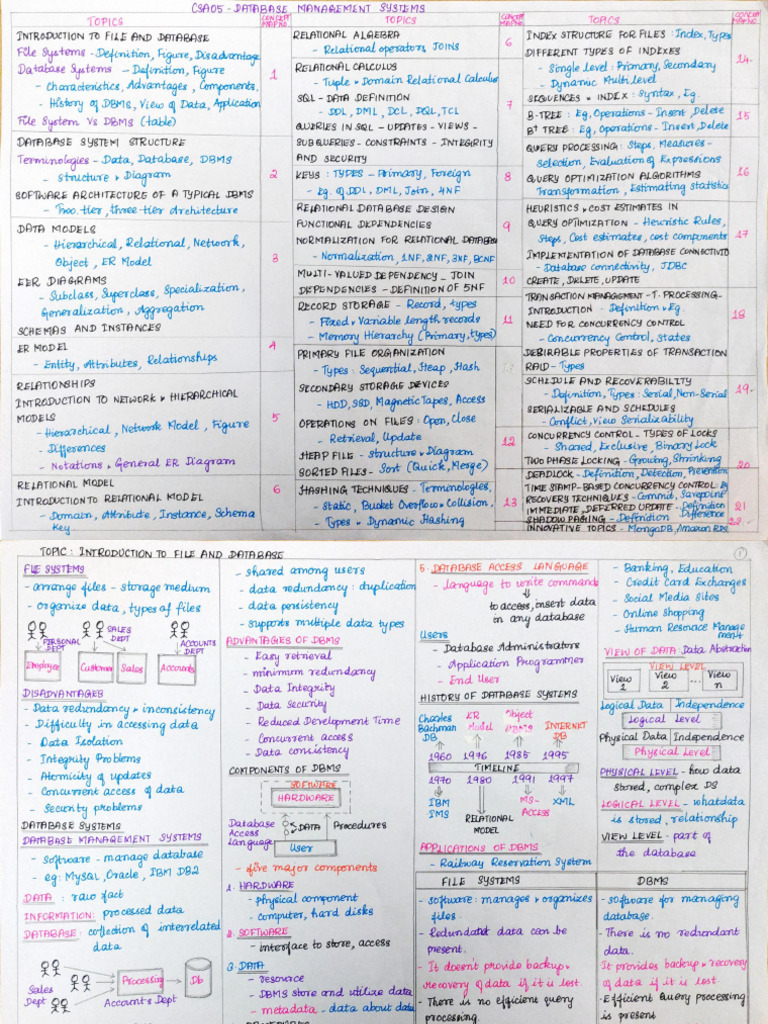 CSA05 - DATABASE MANAGEMENT SYSTEMS
TOPICS
CONCEPT MAP NO
INTRODUCTION TO FILE AND DATABASE
File Systems - Definition, Figure, Disadvantage
Database Systems - Definition, Figure
- Characteristics, Advantages, Components,
- History of DBMS, View of Data, Application
File System Vs DBMS (table)
1
DATABASE SYSTEM STRUCTURE
Terminologies - Data, Database, DBMS
- Structure & Diagram
2
SOFTWARE ARCHITECTURE OF A TYPICAL DBMS
- Two-tier, three-tier architecture
DATA MODELS
- Hierarchical, Relational, Network,
Object, ER Model
3
EER DIAGRAMS
- Subclass, Superclass, Specialization,
Generalization, Aggregation
SCHEMAS AND INSTANCES
ER MODEL
4
- Entity, Attributes, Relationships
RELATIONSHIPS
INTRODUCTION TO NETWORK & HIERARCHICAL
MODELS
5
- Hierarchical, Network Model, Figure
- Differences
- Notations & General ER Diagram
RELATIONAL MODEL
6
INTRODUCTION TO RELATIONAL MODEL
- Domain, Attribute, Instance, Schema
Key
TOPICS
CONCEPT MAP NO
RELATIONAL ALGEBRA
- Relational operators, JOINS
6
RELATIONAL CALCULUS
- Tuple & Domain Relational Calculus
SQL - DATA DEFINITION
7
- DDL, DML, DCL, DQL, TCL
QUERIES IN SQL - UPDATES - VIEWS -
SUBQUERIES - CONSTRAINTS - INTEGRITY
AND SECURITY
KEYS : TYPES - Primary, Foreign
8
- Eg. of DDL, DML, Join, 4NF
RELATIONAL DATABASE DESIGN
FUNCTIONAL DEPENDENCIES
9
NORMALIZATION FOR RELATIONAL DATABASE
- Normalization, 1NF, 2NF, 3NF, BCNF
MULTI-VALUED DEPENDENCY - JOIN
10
DEPENDENCIES - DEFINITION OF 5NF
RECORD STORAGE - Record, types
11
- Fixed & Variable length records
- Memory Hierarchy (Primary, types)
PRIMARY FILE ORGANIZATION
- Types : Sequential, Heap, Hash
SECONDARY STORAGE DEVICES
- HDD, SSD, Magnetic Tapes, Access
OPERATIONS ON FILES : Open, Close
- Retrieval, Update
12
HEAP FILE - Structure & Diagram
SORTED FILES - Sort (Quick, Merge)
HASHING TECHNIQUES - Terminologies,
13
- Static, Bucket Overflow & Collision,
- Types & Dynamic Hashing
TOPICS
CONCEPT MAP NO
INDEX STRUCTURE FOR FILES : Index, Types
DIFFERENT TYPES OF INDEXES
14
- Single level : Primary, Secondary
- Dynamic Multilevel
SEQUENCES & INDEX : Syntax, Eg.
B-TREE : Eg, Operations - Insert, Delete
15
B+ TREE : Eg, Operations - Insert, Delete
QUERY PROCESSING : Steps, Measures -
Selection, Evaluation of Expressions
16
QUERY OPTIMIZATION ALGORITHMS
Transformation, Estimating statistics
HEURISTICS & COST ESTIMATES IN
QUERY OPTIMIZATION - Heuristic Rules,
17
Steps, Cost estimates, cost components
IMPLEMENTATION OF DATABASE CONNECTIVITY
- Database connectivity, JDBC
CREATE, DELETE, UPDATE
TRANSACTION MANAGEMENT - T. PROCESSING -
INTRODUCTION - Definition & Eg.
18
NEED FOR CONCURRENCY CONTROL
- Concurrency Control, States
DESIRABLE PROPERTIES OF TRANSACTION
RAID - Types
SCHEDULE AND RECOVERABILITY
19
- Definition, Types : Serial, Non-Serial
SERIALIZABLE AND SCHEDULES
- Conflict, View Serializability
CONCURRENCY CONTROL - TYPES OF LOCKS
- Shared, Exclusive, Binary Lock
20
TWO PHASE LOCKING - Growing, Shrinking
DEADLOCK - Definition, Detection, Prevention
TIME STAMP-BASED CONCURRENCY CONTROL
RECOVERY TECHNIQUES - Commit, Savepoint
21
IMMEDIATE, DEFERRED UPDATE - Definition
SHADOW PAGING - Definition Difference
22
INNOVATIVE TOPICS - MongoDB, Amazon RDS
TOPIC : INTRODUCTION TO FILE AND DATABASE
1
FILE SYSTEMS
- arrange files - storage medium
- organize data, types of files
PERSONAL DEPT
SALES DEPT
ACCOUNTS DEPT
Employee
Customer
Sales
Accounts
DISADVANTAGES
- Data redundancy & inconsistency
- Difficulty in accessing data
- Data Isolation
- Integrity Problems
- Atomicity of updates
- Concurrent access of data
- Security problems
DATABASE SYSTEMS
DATABASE MANAGEMENT SYSTEMS
- software - manage database
- eg: MySQL, Oracle, IBM DB2
DATA : raw fact
INFORMATION: processed data
DATABASE: collection of interrelated
data
Sales Dept
Processing
Db
Accounts Dept
- shared among users
- data redundancy : duplication
- data persistency
- supports multiple data types
ADVANTAGES OF DBMS
- Easy retrieval
- minimum redundancy
- Data Integrity
- Data Security
- Reduced Development Time
- Concurrent access
- Data consistency
COMPONENTS OF DBMS
SOFTWARE
HARDWARE
Database Access Language
DATA
Procedures
User
- five major components
1. HARDWARE
- physical component
- computer, hard disks
2. SOFTWARE
- interface to store, access
3. DATA
- resource
- DBMS store and utilize data
- metadata - data about data
5. DATABASE ACCESS LANGUAGE
- language to write commands
to access, insert data
in any database
Users
- Database Administrators
- Application Programmer
- End User
HISTORY OF DATABASE SYSTEMS
Charles Bachman DB
ER Model
Object DBMS
INTERNET DB
1960 1976 1985 1995
TIMELINE
1970 1980 1991 1997
IBM IMS
RELATIONAL MODEL
MS-ACCESS
XML
APPLICATIONS OF DBMS
- Railway Reservation System
- Banking, Education
- Credit Card Exchanges
- Social Media Sites
- Online Shopping
- Human Resource Manage
ment
VIEW OF DATA : Data Abstraction
VIEW LEVEL
View 1
View 2
...
View n
Logical Data Independence
Logical Level
Physical Data Independence
Physical Level
PHYSICAL LEVEL - how data
stored, complex DS
LOGICAL LEVEL - what data
is stored, relationship
VIEW LEVEL - part of
the database
FILE SYSTEMS
- software : manages & organizes
files.
- Redundant data can be
present.
- It doesn't provide backup &
recovery of data if it is lost.
- There is no efficient query
processing.
DBMS
- software for managing
database.
- There is no redundant
data.
- It provides backup & recovery
of data if it is lost
- Efficient Query processing
is present